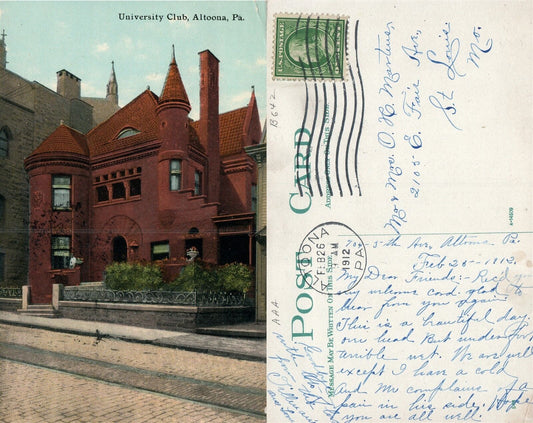 University Club, Altoona, Pa.
B642
AAA
POST CARD
Address Only on This Side.
Message May Be Written on This Side.
A-14079
ALTOONA
FEB 26
AM
1912
PA.
Mr & Mrs. O. H. Martens,
2105 E. Fair Av,
St Louis
Mo.
5th Av, Altoona Pa.
Feb 25 - 1912.
My Dear Friends:- Rec'd
welcome card glad to
hear from you again.
This is a beautiful day
over head But under foot
terrible wet. We are well
except I have a cold
and Mr complains of a
pain in his side. Hope
you are all well.